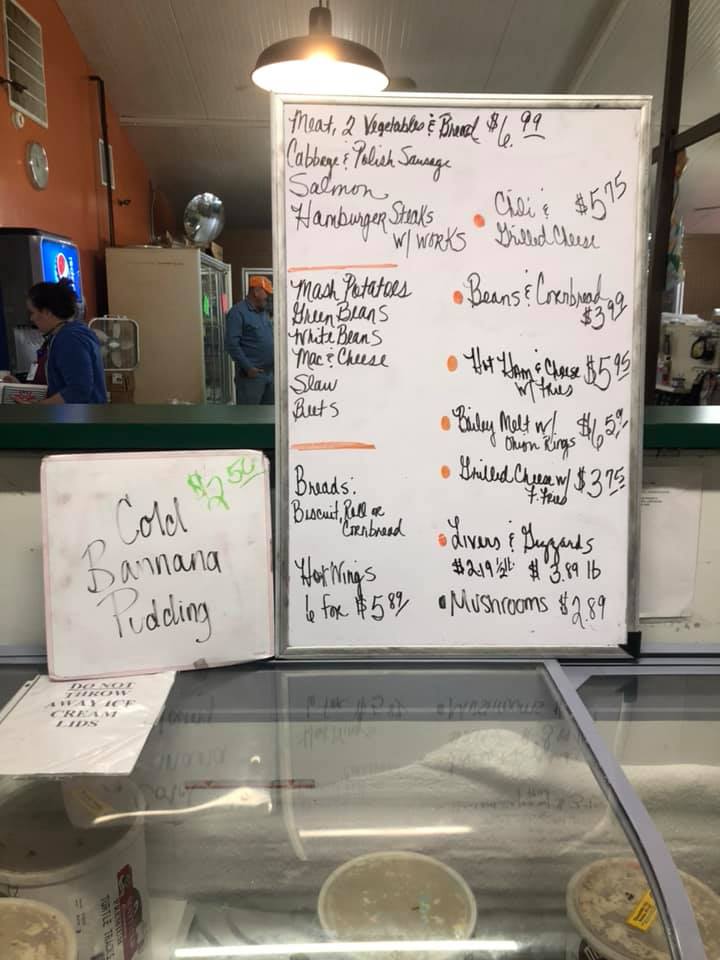 Meat, 2 Vegetables & Bread $6.99
Cabbage & Polish Sausage
Salmon
Hamburger Steaks
w/ works
Mash Potatoes
Green Beans
White Beans
Mac & Cheese
Slaw
Beets
Breads:
Biscuit, Roll or
Cornbread
Hot Wings
6 for $5.89
Chili & $5.75
Grilled Cheese
Beans & Cornbread
$3.99
Hot Ham & Cheese $5.95
w/ Fries
Bailey Melt w/
Onion Rings
Grilled Cheese w/ $3.75
F. Fries
Livers & Gizzards
$2.19 ½ lb $3.89 lb
Mushrooms $2.89
$2.50
Cold
Bannana
Pudding
DO NOT
THROW
AWAY ICE
CREAM
LIDS
pepsi
TURTLE TRACKS